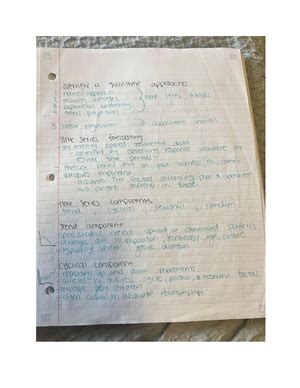 overview of quantitative approaches
1. naive approach
2. moving averages
3. exponential smoothing
4. trend projection
time series models
5. linear regression
associative model
Time Series Forecasting
set evenly spaced numerical data
obtained by observing response variable at
regular time periods
forecast based only on past values, no other
variables important
assumes that factors influencing past & present
will continue influence in future
Time Series Components
trend, cyclical, seasonal, random
Trend Component
persistent, overall upward or downward pattern
changes due to population, technology, age, culture
typically several years duration
Cyclical Component
repeating up and down movements
affected by business cycle, political, & economic factors
multiple years duration
often causal or associative relationships